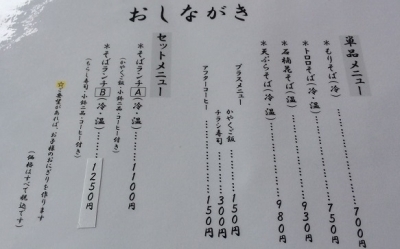 おしながき
単品メニュー
＊もりそば(冷)……………700円
＊トロロそば(冷)……………750円
＊石楠花そば(温)……………930円
＊天ぷらそば(冷・温)……………980円
プラスメニュー
かやくご飯……………150円
チラシ寿司……………300円
アフターコーヒー……………150円
セットメニュー
＊そばランチA(冷・温)……………1100円
(かやくご飯・小鉢二品・コーヒー付き)
＊そばランチB(冷・温)……………1250円
(ちらし寿司・小鉢二品・コーヒー付き)
☆ご要望があれば、お子様のおにぎりを作ります
(価格はすべて税込です)